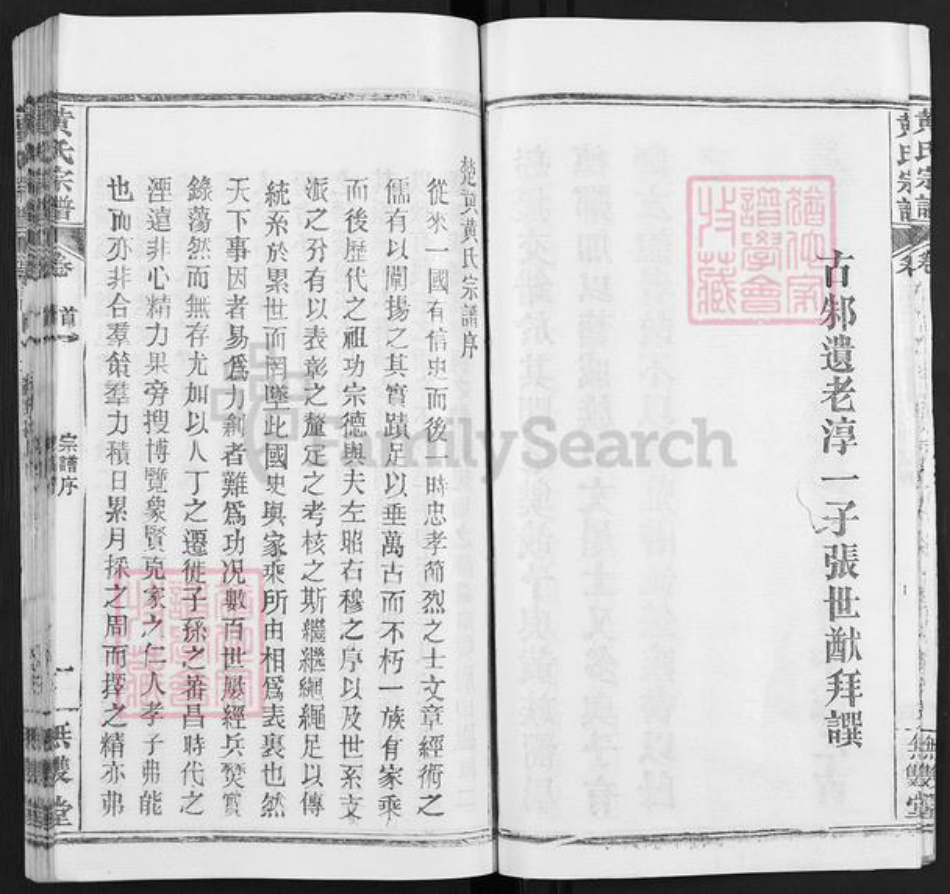 黃氏宗譜
卷
無雙堂
古邾遺老淳一子張世猷拜譔
楚黃黃氏宗譜序
從來一國有信史而後一時忠孝節烈之士文章經術之
儒有以闡揚之其實蹟足以垂萬古而不朽一族有家乘
而後歷代之祖功宗德與夫左昭右穆之序以及世系支
派之分有以表彰之釐定之考核之斯繼繼繩繩足以傳
統系於累世而罔墜此國史與家乘所由相爲表裏也然
天下事因者易爲力創者難爲功况數百世歷經兵燹實
錄蕩然而無存尤加以人丁之遷徙子孫之蕃昌時代之
湮遠非心精力果旁搜博覽象賢克家之仁人孝子弗能
也而亦非合羣策羣力積日累月採之周而擇之精亦弗
黃氏宗譜
卷首
宗譜序
一
無雙堂
FamilySearch